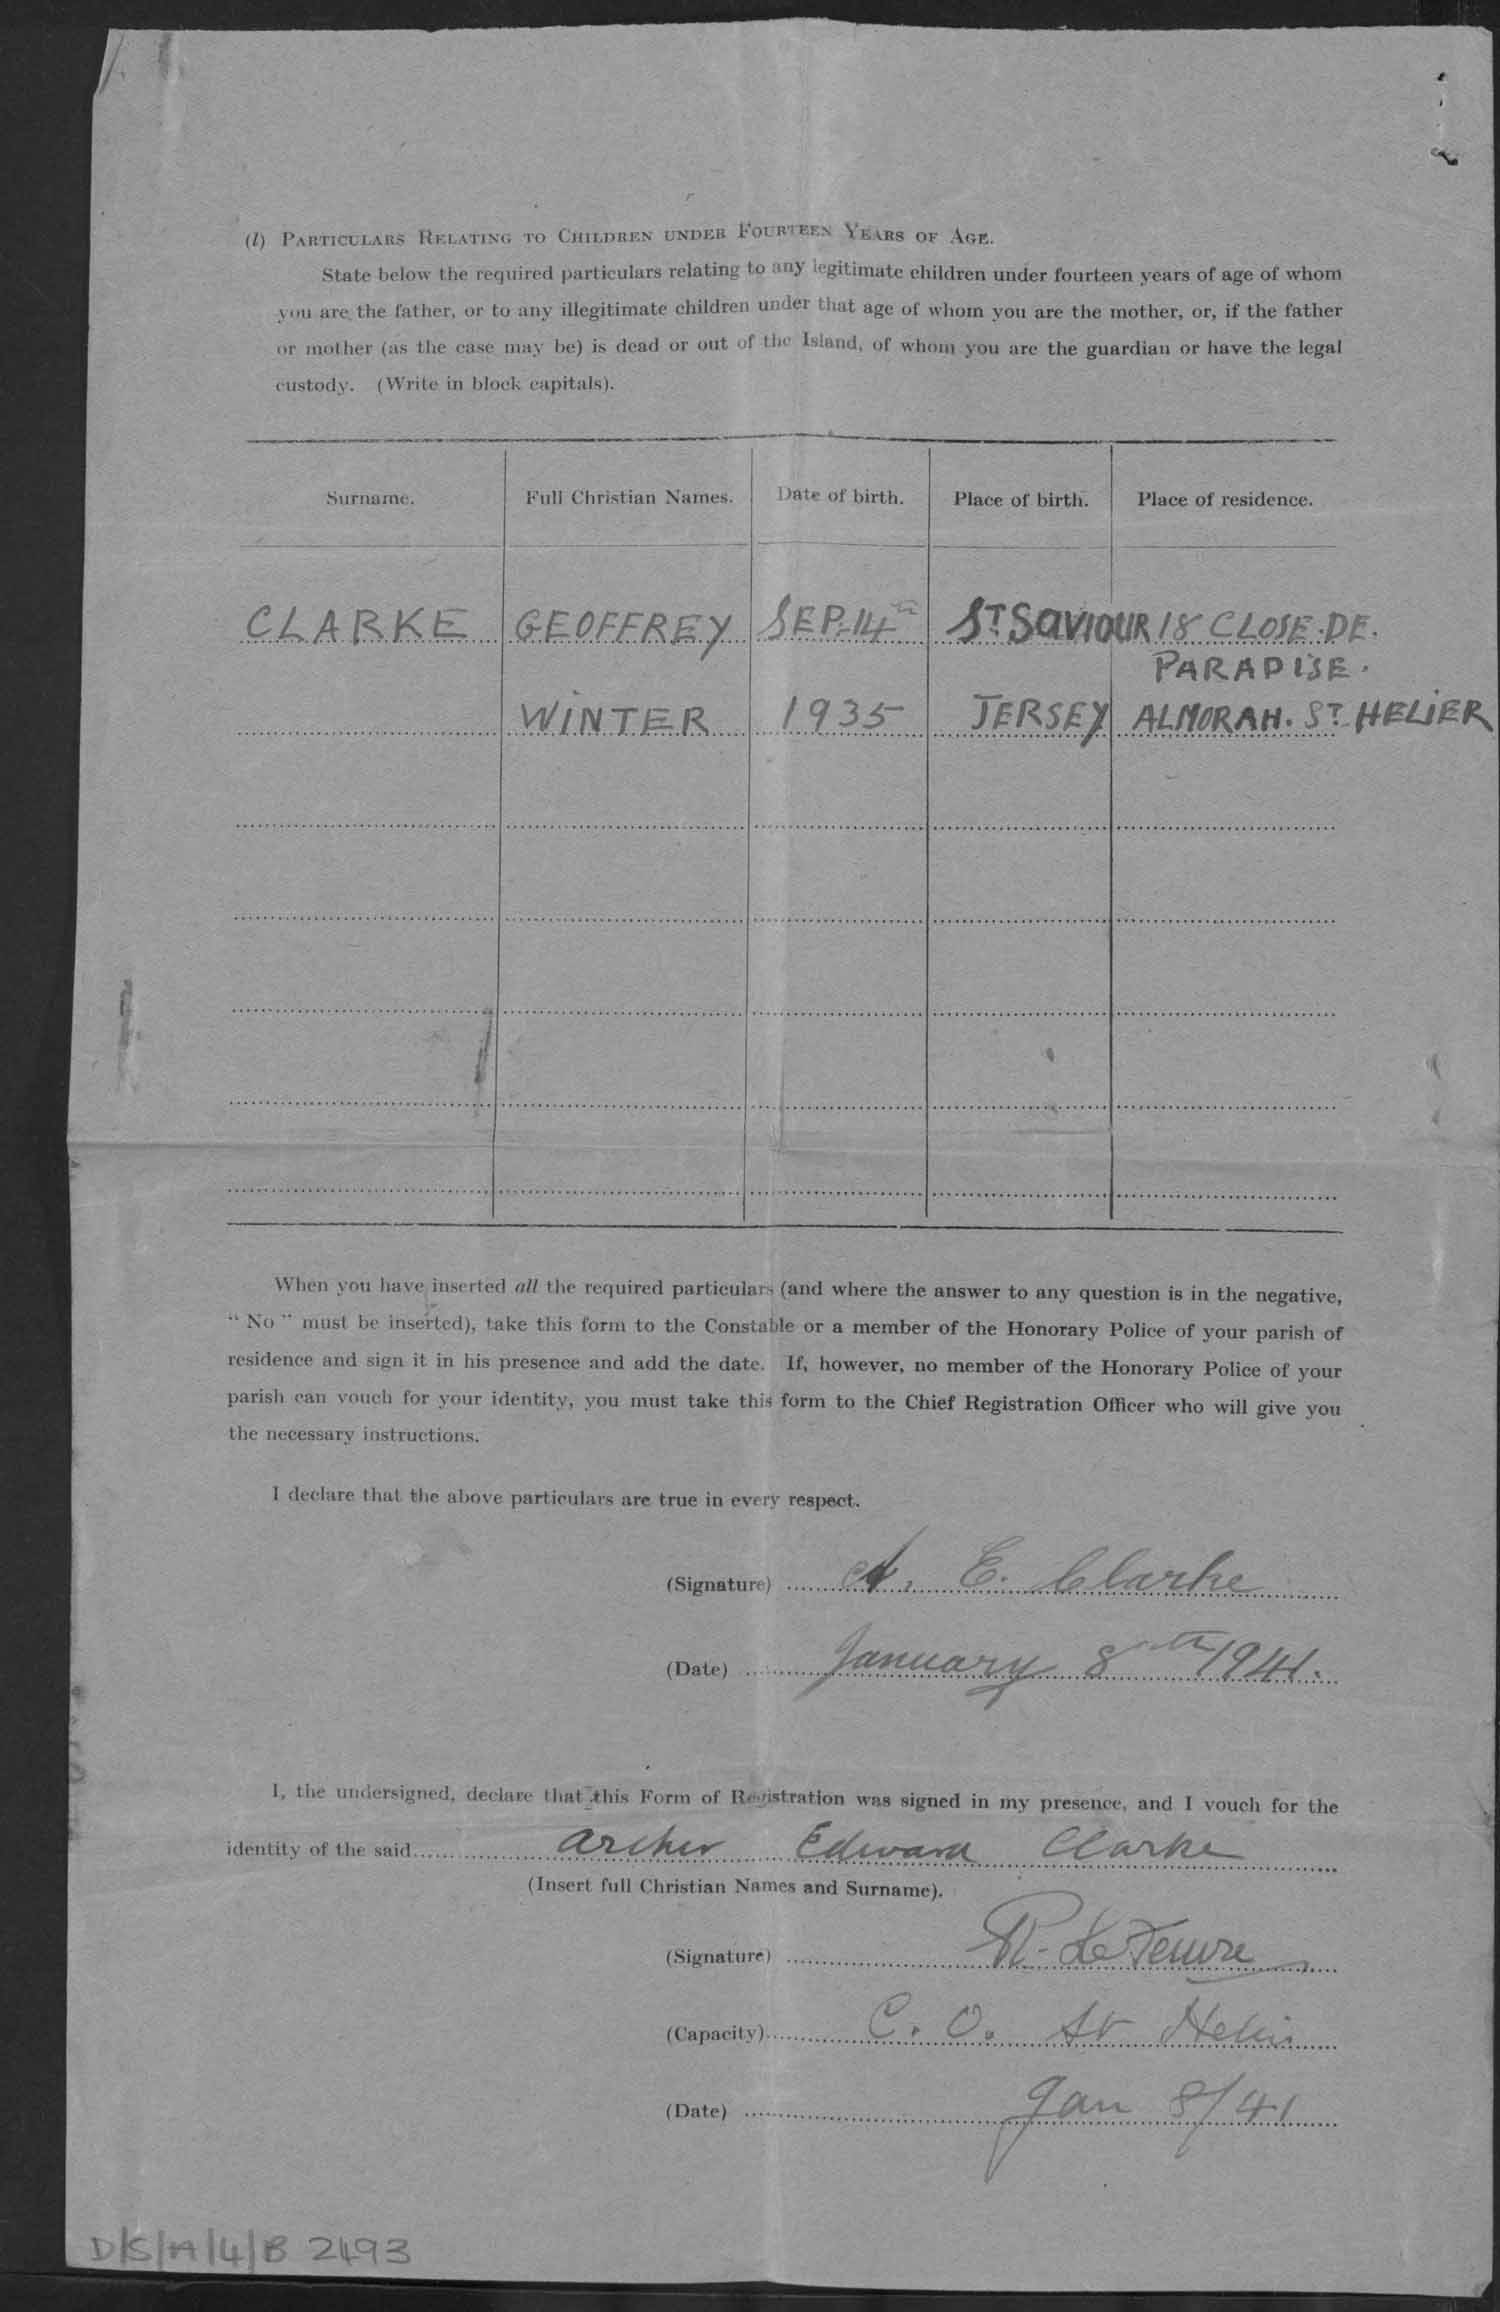 (l) PARTICULARS RELATING TO CHILDREN UNDER FOURTEEN YEARS OF AGE.
State below the required particulars relating to any legitimate children under fourteen years of age of whom
you are the father, or to any illegitimate children under that age of whom you are the mother, or, if the father
or mother (as the case may be) is dead or out of the Island, of whom you are the guardian or have the legal
custody. (Write in block capitals).
Surname. Full Christian Names. Date of birth. Place of birth. Place of residence.
CLARKE GEOFFREY SEP. 14th ST SAVIOUR 18 CLOSE. DE.
PARADISE.
WINTER 1935 JERSEY ALMORAH. ST HELIER
When you have inserted all the required particulars (and where the answer to any question is in the negative,
“ No ” must be inserted), take this form to the Constable or a member of the Honorary Police of your parish of
residence and sign it in his presence and add the date. If, however, no member of the Honorary Police of your
parish can vouch for your identity, you must take this form to the Chief Registration Officer who will give you
the necessary instructions.
I declare that the above particulars are true in every respect.
(Signature) A. E. Clarke
(Date) January 8th 1941.
I, the undersigned, declare that this Form of Registration was signed in my presence, and I vouch for the
identity of the said Archer Edward Clarke
(Insert full Christian Names and Surname).
(Signature) Le
(Capacity) C. O. St Helier
(Date) Jan 8/41
D/S/A/4/B 2493